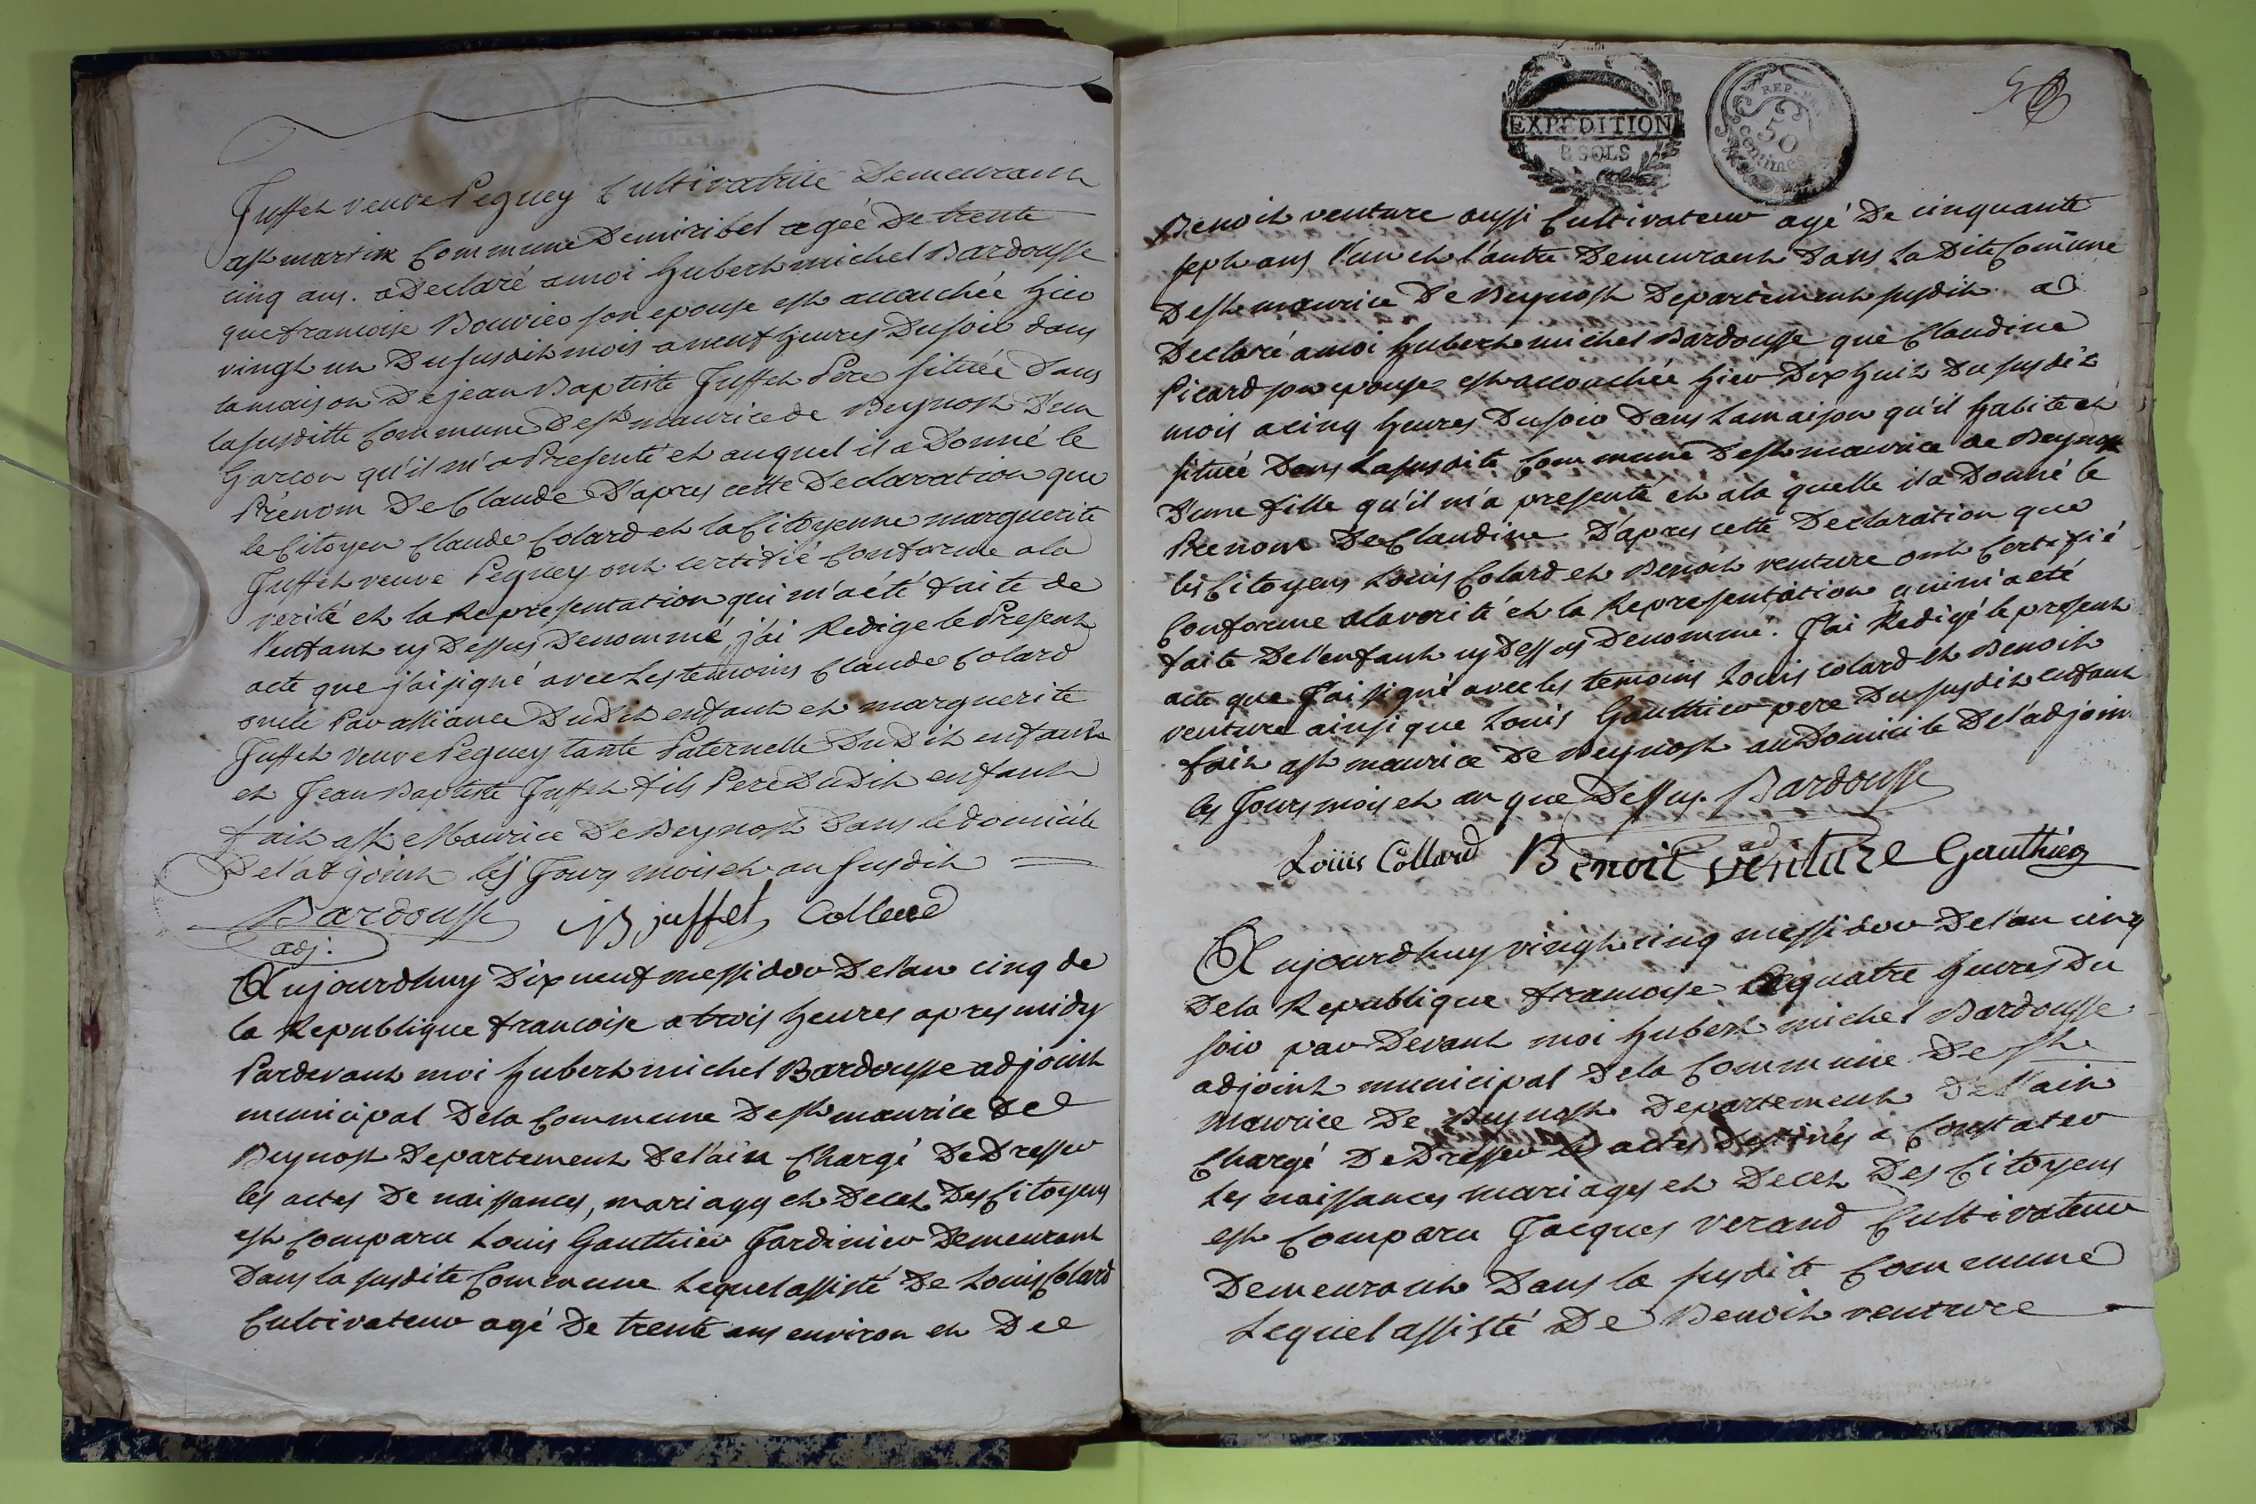 Juffet veuve Peguey Cultivatrice Demeurant
a st martin Commune De miribel agée De trente
cinq ans. a Declaré a moi hubert michel Bardousse
que francoise Bouvier son epouse est accouchée hier
vingt un Du susdit mois a neuf heures Du soir dans
la maison De jean Baptiste Juffet Pere située Dans
la susditte Commune De st maurice de Beynost D'un
Garcon qu'il m'a Presenté et auquel il a Donné le
Prénom De Claude D'apres cette Declaration que
le Citoyen Claude Colard et la Citoyenne marguerite
Juffet veuve Peguey ont certifié Conforme a la
verité et la Representation qui m'a été faite de
l'enfant cy Dessus Denommé, j'ai Redigé le Present
acte que j'ai signé avec Les temoins Claude Colard
oncle Par alliance Du Dit enfant et marguerite
Juffet veuve Peguey tante Paternelle Du Dit enfant
et Jean Baptiste Juffet fils Pere Du Dit enfant
fait a st Maurice De Beynost Dans le domicile
De l'adjoint les Jours mois et an susdit
Bardousse JB juffet
adj.
Aujourdhuy Dix neuf messidor De l'an cinq de
la Republique francoise a trois heures apres midy
Pardevant moi hubert michel Bardousse adjoint
municipal De la Commune De st maurice De
Beynost Departement De l'ain Chargé De Dresser
les actes De naissances, mariages et Deces Des Citoyens
est Comparu Louis Gauthier Jardinier Demeurant
Dans la susdite Commune Lequel assisté De Louis Colard
Cultivateur agé De trente ans environ et De
EXPEDITION
8 SOLS
REP. FRA.
50
centimes
Benoit venture aussi Cultivateur agé De cinquante
sept ans l'un et l'autre Demeurant Dans La Dite Comune
De st maurice De Beynost Departement susdit a
Declaré a moi hubert michel Bardousse que Claudine
Picard son epouse est accouchée hier Dix huit Du susdit
mois a cinq heures Du soir Dans La maison qu'il habite et
située Dans La susdite Commune De st maurice de Beynost
D'une fille qu'il m'a presenté et a la quelle il a Donné le
Prenom De Claudine D'apres cette Declaration que
les Citoyens Louis Colard et Benoit venture ont Certifié
Conforme a la verité et la Representation qui m'a été
faite De l'enfant cy Dessus Denommé. J'ai Redigé le present
acte que J'ai signé avec les temoins Louis colard et Benoit
venture ainsi que Louis Gauthier pere Du susdit enfant
fait a st maurice De Beynost au Domicile De l'adjoint
les Jours mois et an que Dessus. Bardousse
adj
Louis Collard Benoit venture Gauthier
Aujourdhuy vingt cinq messidor De l'an cinq
De la Republique francoise a quatre heures Du
soir par Devant moi hubert michel Bardousse
adjoint municipal De la Commune De st
Maurice De Beynost Departement De l'ain
Chargé De Dresser les actes Destinés a Constater
Les naissances mariages et Deces Des Citoyens
est Comparu Jacques verand Cultivateur
Demeurant Dans la susdite Commune
Lequel assisté De Benoit venture